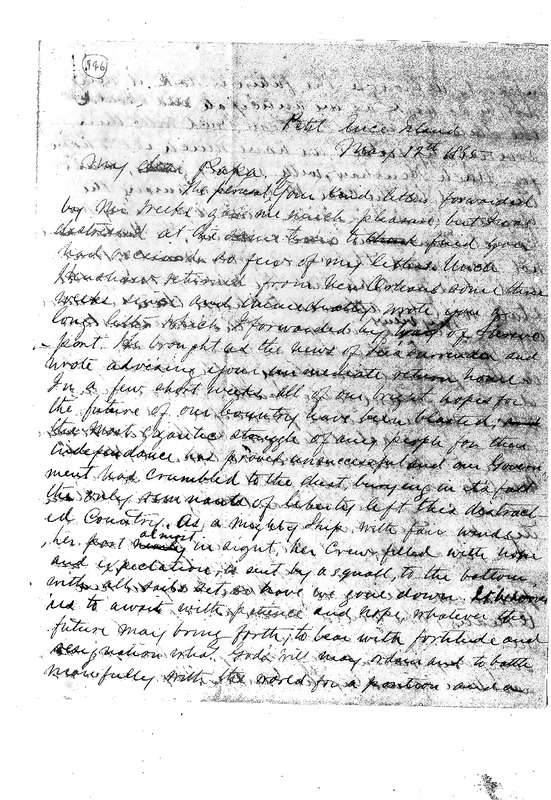 146
Petit Ance Island
May 12th 1865
My dear Papa,
The perusal your kind letters forwarded
by Mr Weeks gave me much pleasure but I was
distressed at the same time to find you
had received so few of my letters Uncle
returned from New Orleans some three
weeks since and immediately wrote you a
long letter which I forwarded by way of Shreve
port. He brought us the news of Lees surrender and
wrote advising your immediate return home
In a few short weeks all of our bright hopes for
the future of our Country have been blasted, and
the most gigantic struggle of any people for their
independance has proved unsuccessful and our Govern
ment has crumbled to the dust burying in its fall
the only remnants of liberty left this distract
ed Country. As a mighty ship with fair winds
her port almost in sight, her crew filled with hope
and expectation, is sent by a squall, to the bottom
with all sails set, so have we gone down. It behooves
us to await with patience and hope, whatever the
future may bring forth, to bear with fortitude and
resignation what God's will may ordain and to battle
manfully with the world for a position and a